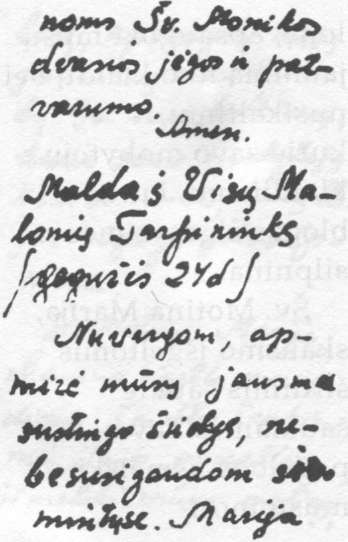 noms Šv. Monikos
dvasios jėgos ir pat-
varumo.
Amen.
Malda į Visų Ma-
lonių Tarpininkę
/gegužis 24d/
Nuvargom, ap-
mirė mūsų jausmai
sustingo širdys, ne-
besusigaudom savo
mintyse. Marija